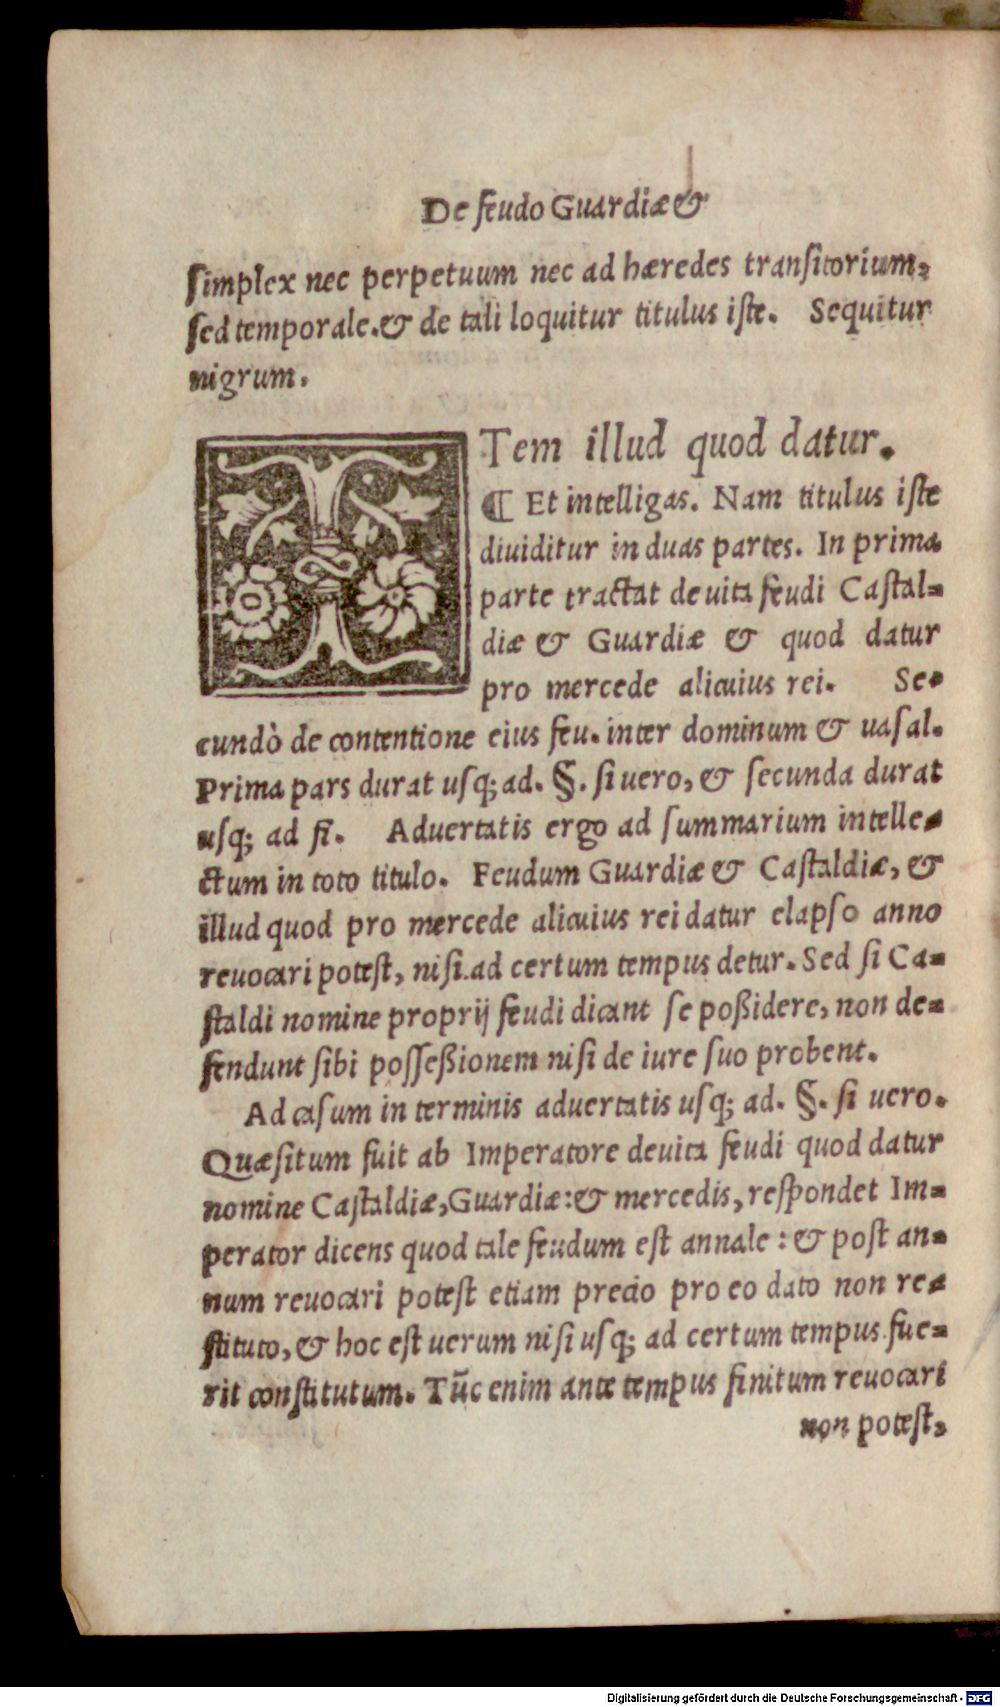 De feudo Guardiæ &
simplex nec perpetuum nec ad hæredes transitorium,
sed temporale. & de tali loquitur titulus iste. Sequitur
nigrum.
ITem illud quod datur.
¶ Et intelligas. Nam titulus iste
diuiditur in duas partes. In prima
parte tractat de uita feudi Castal-
diæ & Guardiæ & quod datur
pro mercede alicuius rei. Se-
cundò de contentione eius feu. inter dominum & uasal.
Prima pars durat usq; ad. §. si vero, & secunda durat
usq; ad fi. Aduertatis ergo ad summarium intelle-
ctum in toto titulo. Feudum Guardiæ & Castaldiæ, &
illud quod pro mercede alicuius rei datur elapso anno
reuocari potest, nisi ad certum tempus detur. Sed si Ca-
staldi nomine proprij feudi dicant se poßidere, non de-
fendunt sibi posseßionem nisi de iure suo probent.
Ad casum in terminis aduertatis usq; ad. §. si uero.
Quæsitum fuit ab Imperatore de uita feudi quod datur
nomine Castaldiæ, Guardiæ: & mercedis, respondet Im-
perator dicens quod tale feudum est annale: & post an-
num reuocari potest etiam precio pro eo dato non re-
stituto, & hoc est uerum nisi usq; ad certum tempus fue-
rit constitutum. Tūc enim ante tempus finitum reuocari
non potest,
Digitalisierung gefördert durch die Deutsche Forschungsgemeinschaft - DFG